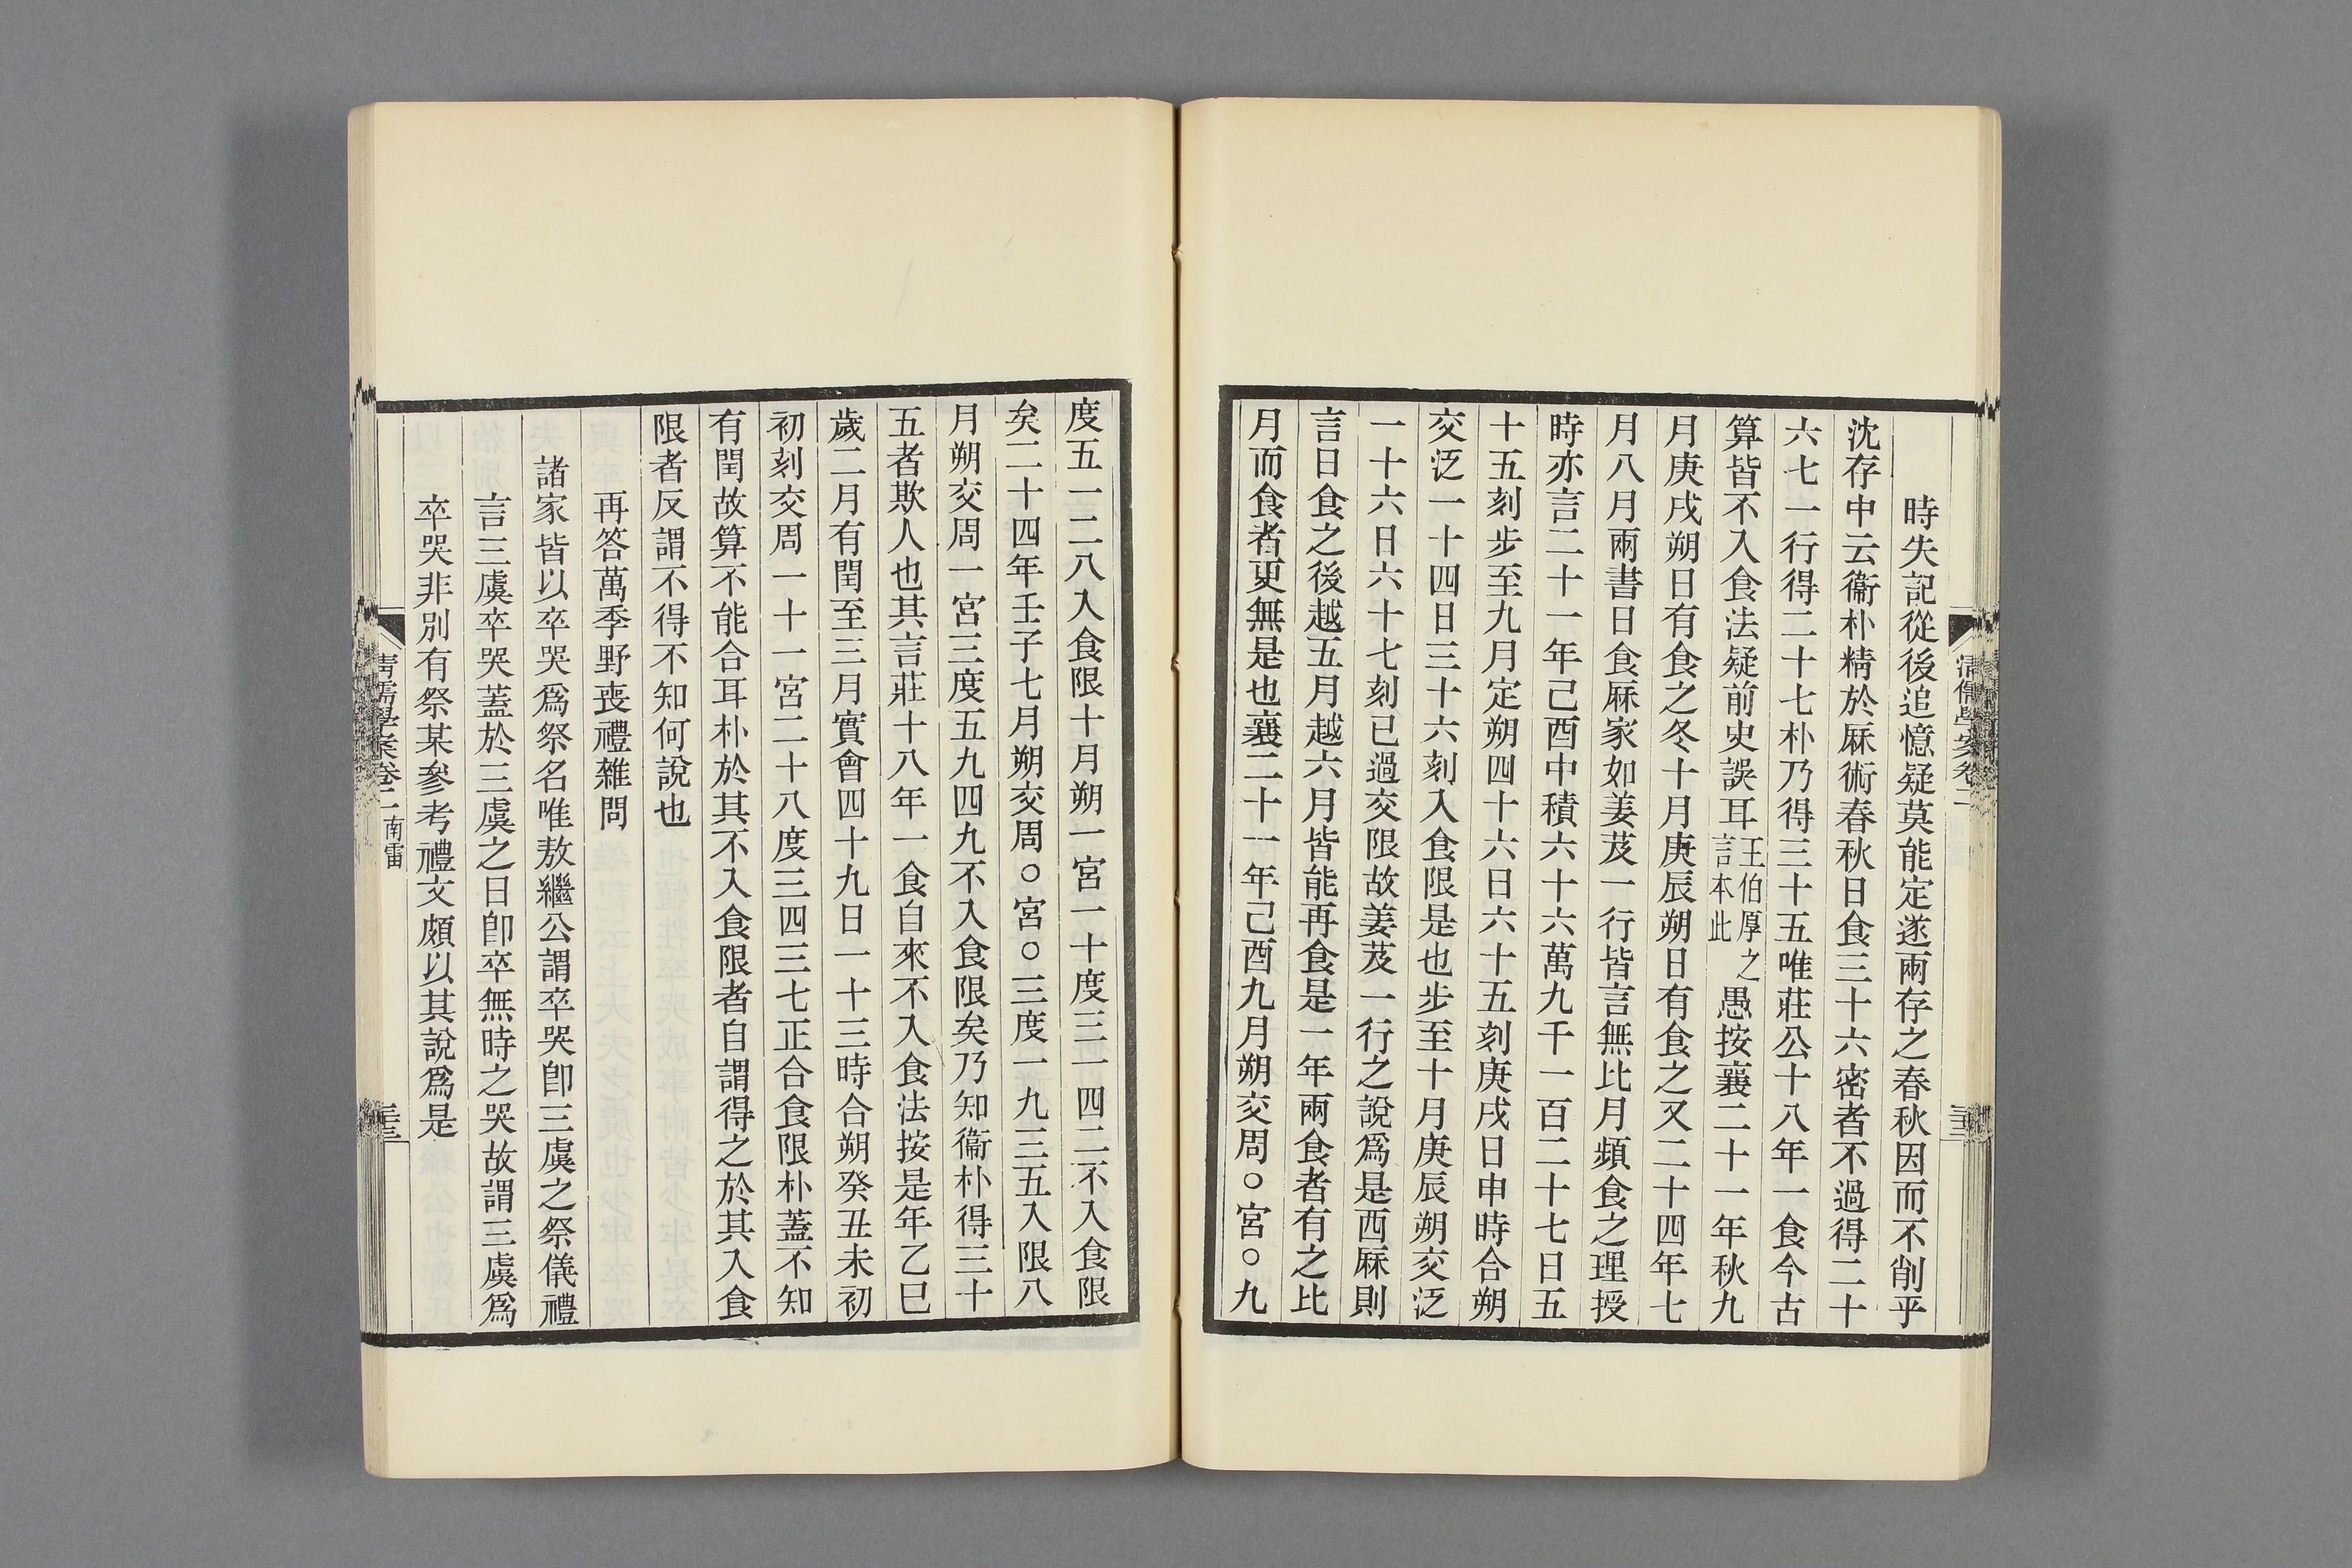 時失記從後追憶疑莫能定遂兩存之春秋因而不削乎
沈存中云衞朴精於厤術春秋日食三十六密者不過得二十
六七一行得二十七朴乃得三十五唯莊公十八年一食今古
算皆不入食法疑前史誤耳王伯厚之言本此愚按襄二十一年秋九
月庚戌朔日有食之冬十月庚辰朔日有食之又二十四年七
月八月兩書日食厤家如姜岌一行皆言無比月頻食之理授
時亦言二十一年己酉中積六十六萬九千一百二十七日五
十五刻步至九月定朔四十六日六十五刻庚戌日申時合朔
交泛一十四日三十六刻入食限是也步至十月庚辰朔交泛
一十六日六十七刻已過交限故姜岌一行之說爲是西厤則
言日食之後越五月越六月皆能再食是一年兩食者有之比
月而食者更無是也襄二十一年己酉九月朔交周○宮○九
度五一二八入食限十月朔一宮一十度三一四二不入食限
矣二十四年壬子七月朔交周○宮○三度一九三五入限八
月朔交周一宮三度五九四九不入食限矣乃知衞朴得三十
五者欺人也其言莊十八年一食自來不入食法按是年乙巳
歲二月有閏至三月實會四十九日一十三時合朔癸丑未初
初刻交周一十一宮二十八度三四三七正合食限朴蓋不知
有閏故算不能合耳朴於其不入食限者自謂得之於其入食
限者反謂不得不知何說也
再答萬季野喪禮雜問
諸家皆以卒哭爲祭名唯敖繼公謂卒哭卽三虞之祭儀禮
言三虞卒哭蓋於三虞之日卽卒無時之哭故謂三虞爲
卒哭非別有祭某參考禮文頗以其說爲是
清儒學案卷二
南雷
三三